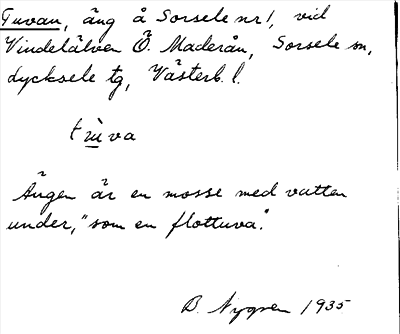 Tuvan, äng å Sorsele nr 1, vid
Vindelälven Ö. Maderån, Sorsele sn,
Lycksele tg, Västerb. l.
tu̇̀va
Ängen är en mosse med vatten
under, "som en flottuva".
B. Nygren 1935